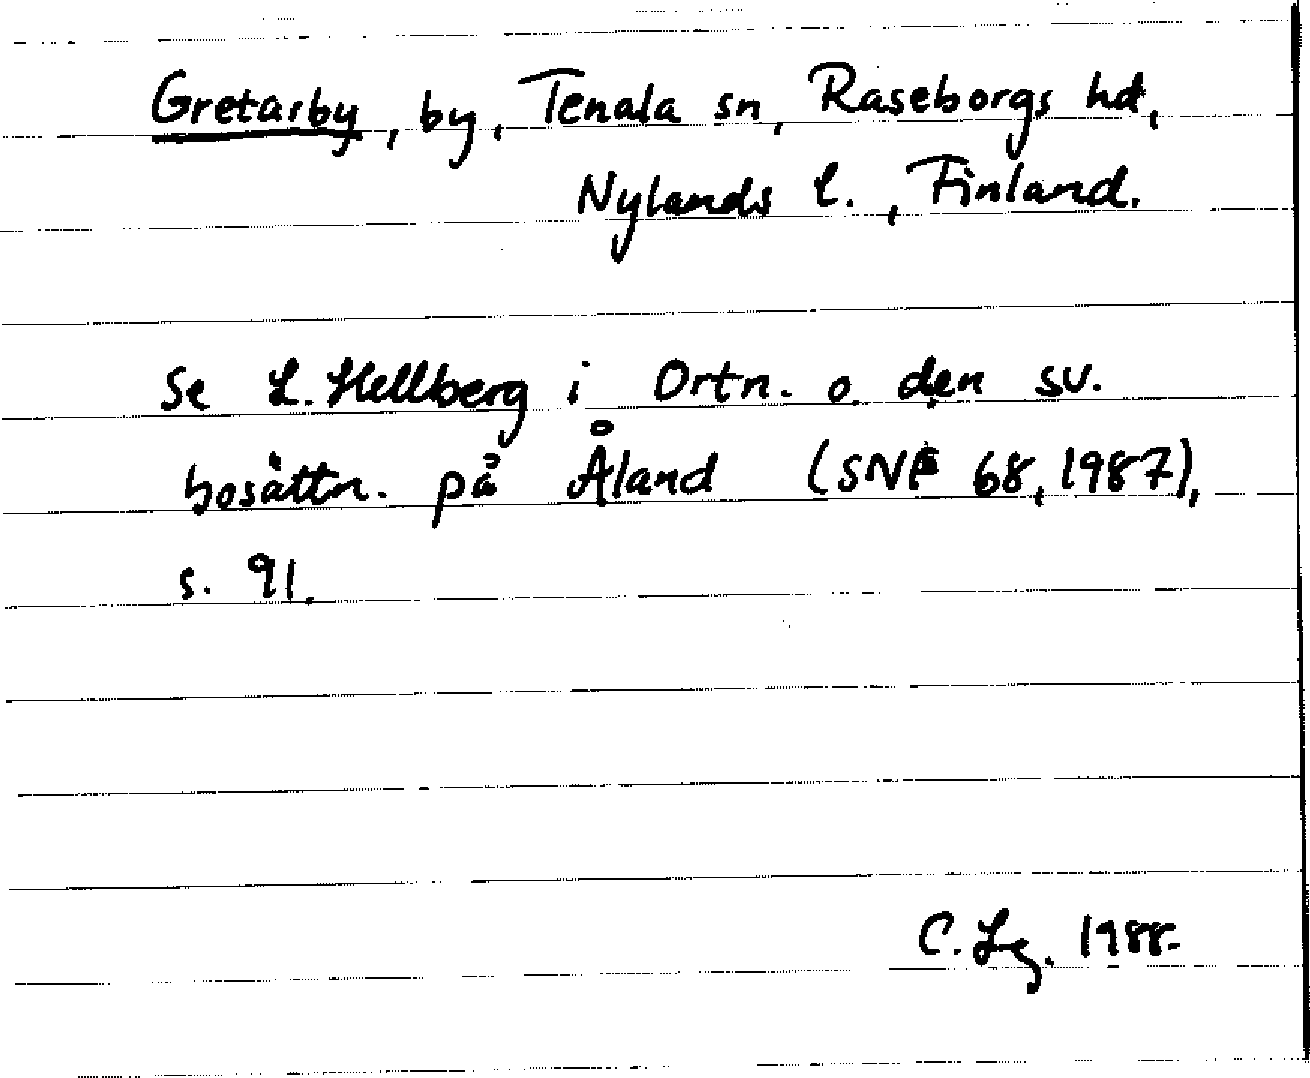 Gretarby, by, Tenala sn, Raseborgs hd,
Nylands l., Finland.
Se L. Hellberg i Ortn. o. den sv.
bosättn. på Åland (SNF 68, 1987),
s. 91.
C. Lg. 1988.